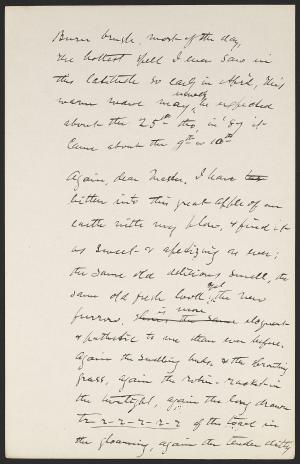 Burn brush, most of the day,
the hottest spell I ever saw in
this latitude so early in April, this
usually
warm wave may, be expected
about the 25th tho, in 89 it
came about the 9th or 10th
Again, dear Master, I have
bitten into this great apple of an
earth with my plow, & find it
as sweet & apetizing as ever;
the same old delicious smell, the
same old fresh look, yet the new
furrow, is more eloquent
& pathetic to me than ever before.
Again the swelling buds, & the sprouting
grass, again the robin-racket in
the twilight, again the long drawn
tr-r-r-r-r-r of the toad in
the gloaming, again the tender